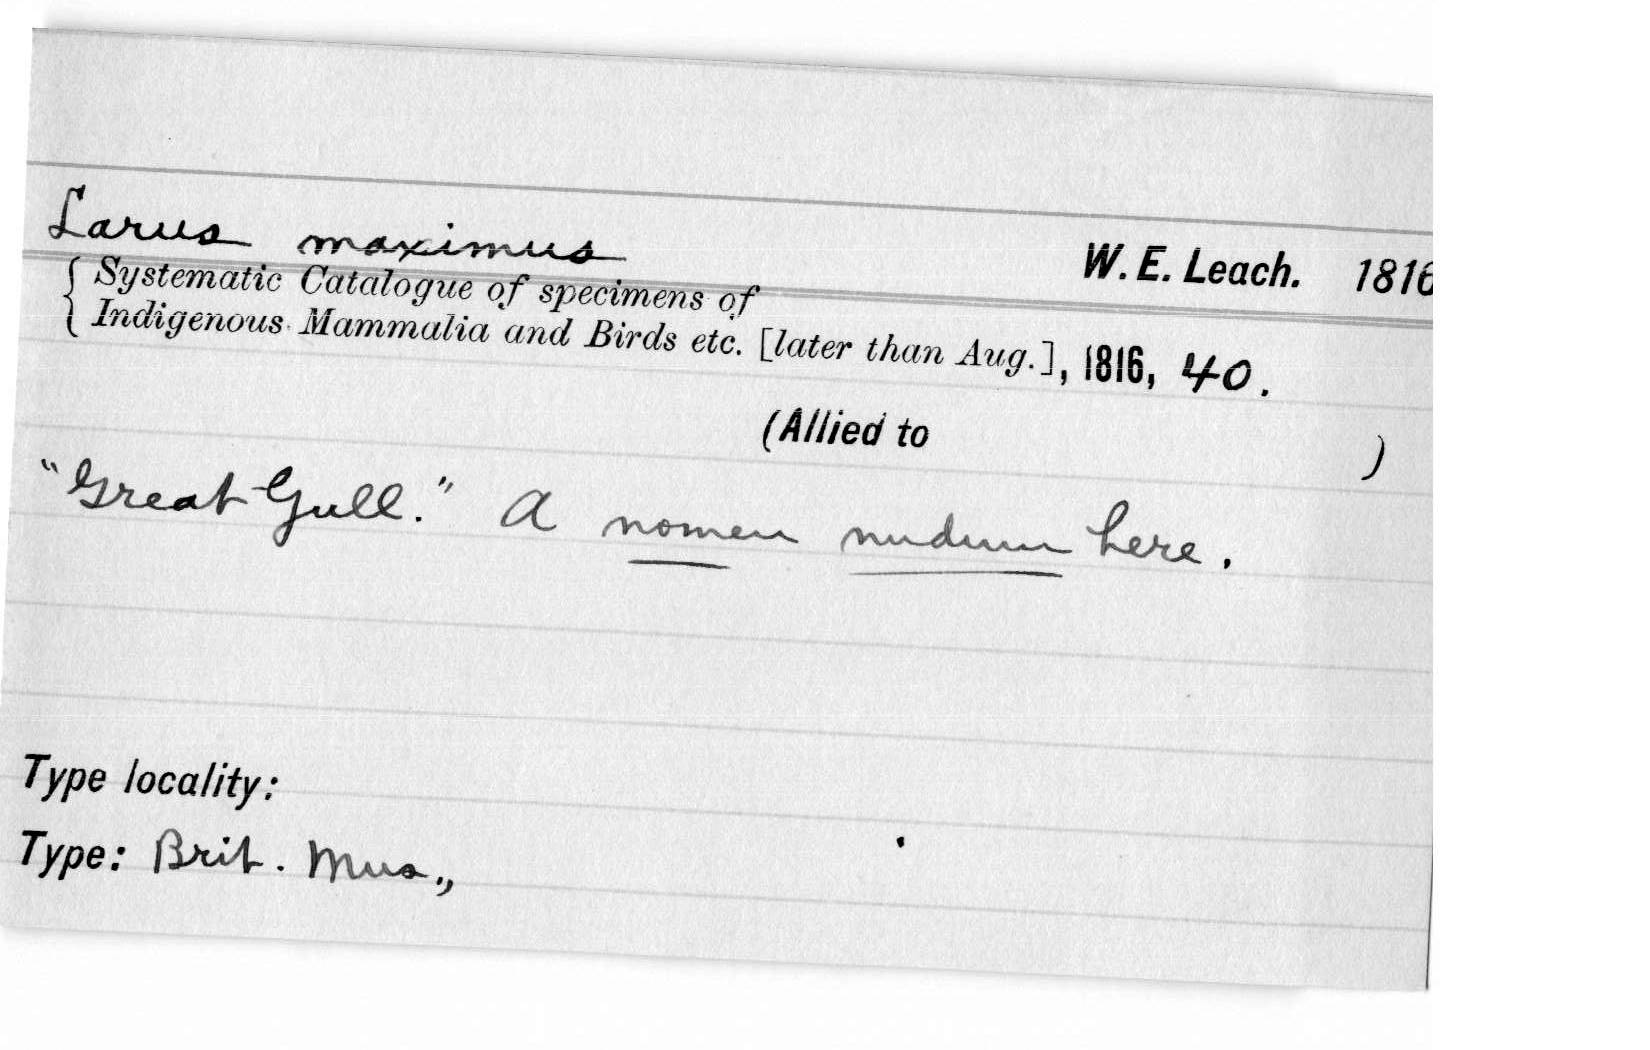 Larus maximus W. E. Leach. 1816
{ Systematic Catalogue of specimens of
Indigenous Mammalia and Birds etc. [later than Aug.], 1816, 40.
(Allied to )
"Great Gull." A nomen nudum here.
Type locality:
Type: Brit. Mus.,